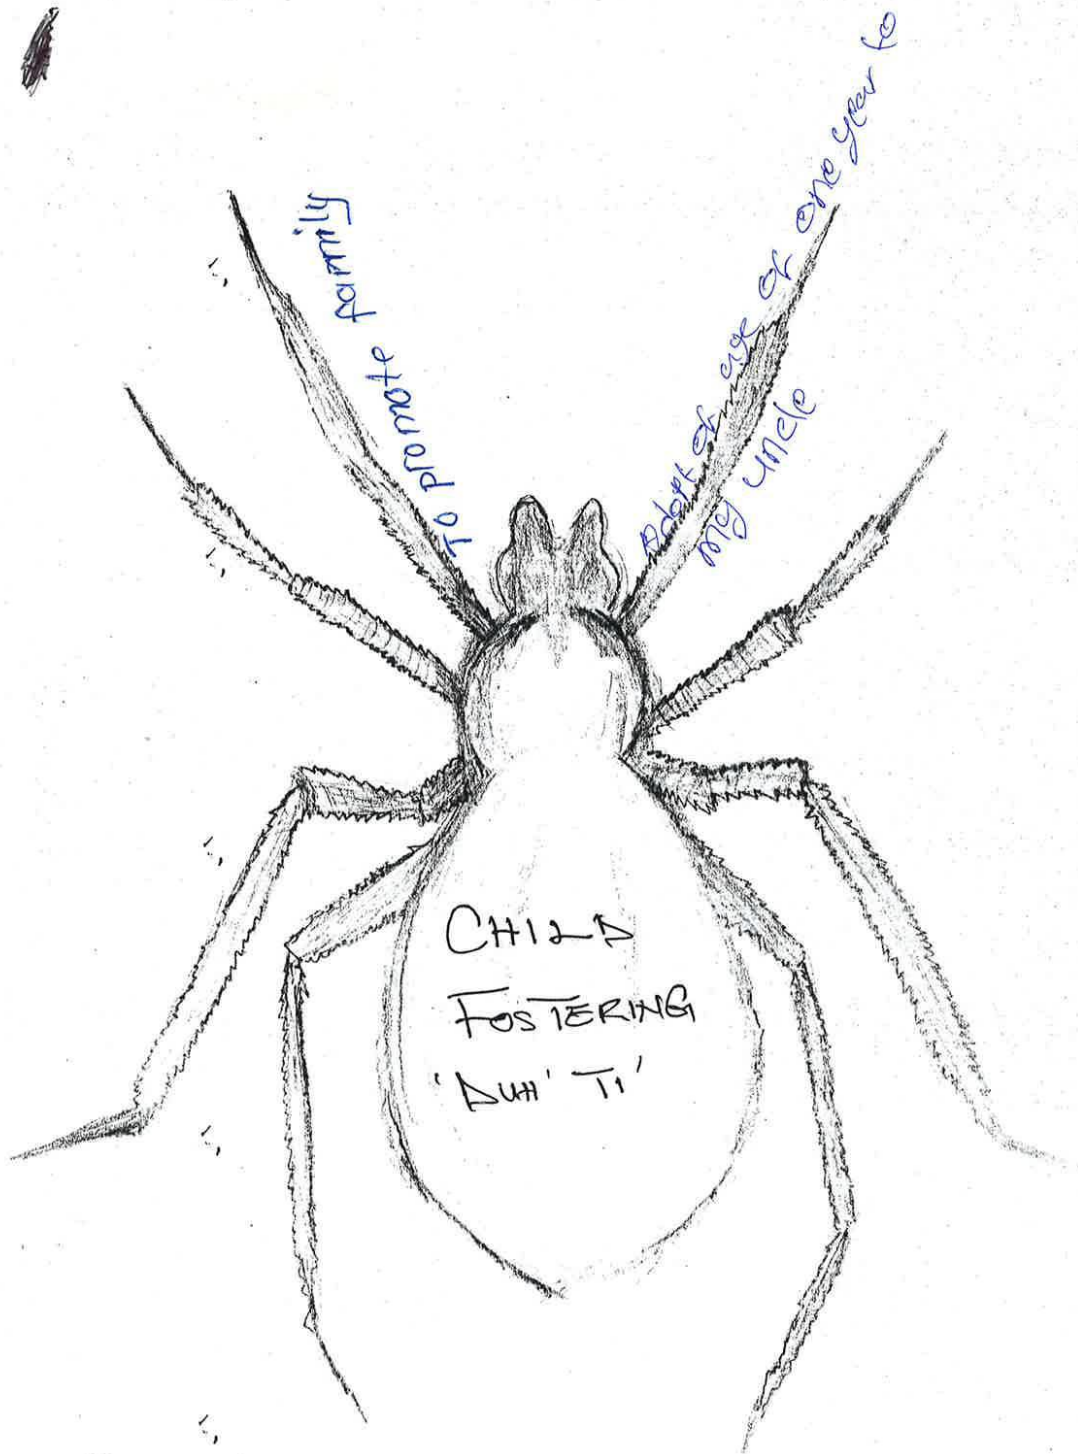 To promote family
Adopt of age of one year to
my uncle
CHILD
FOSTERING
'DUH' TI'